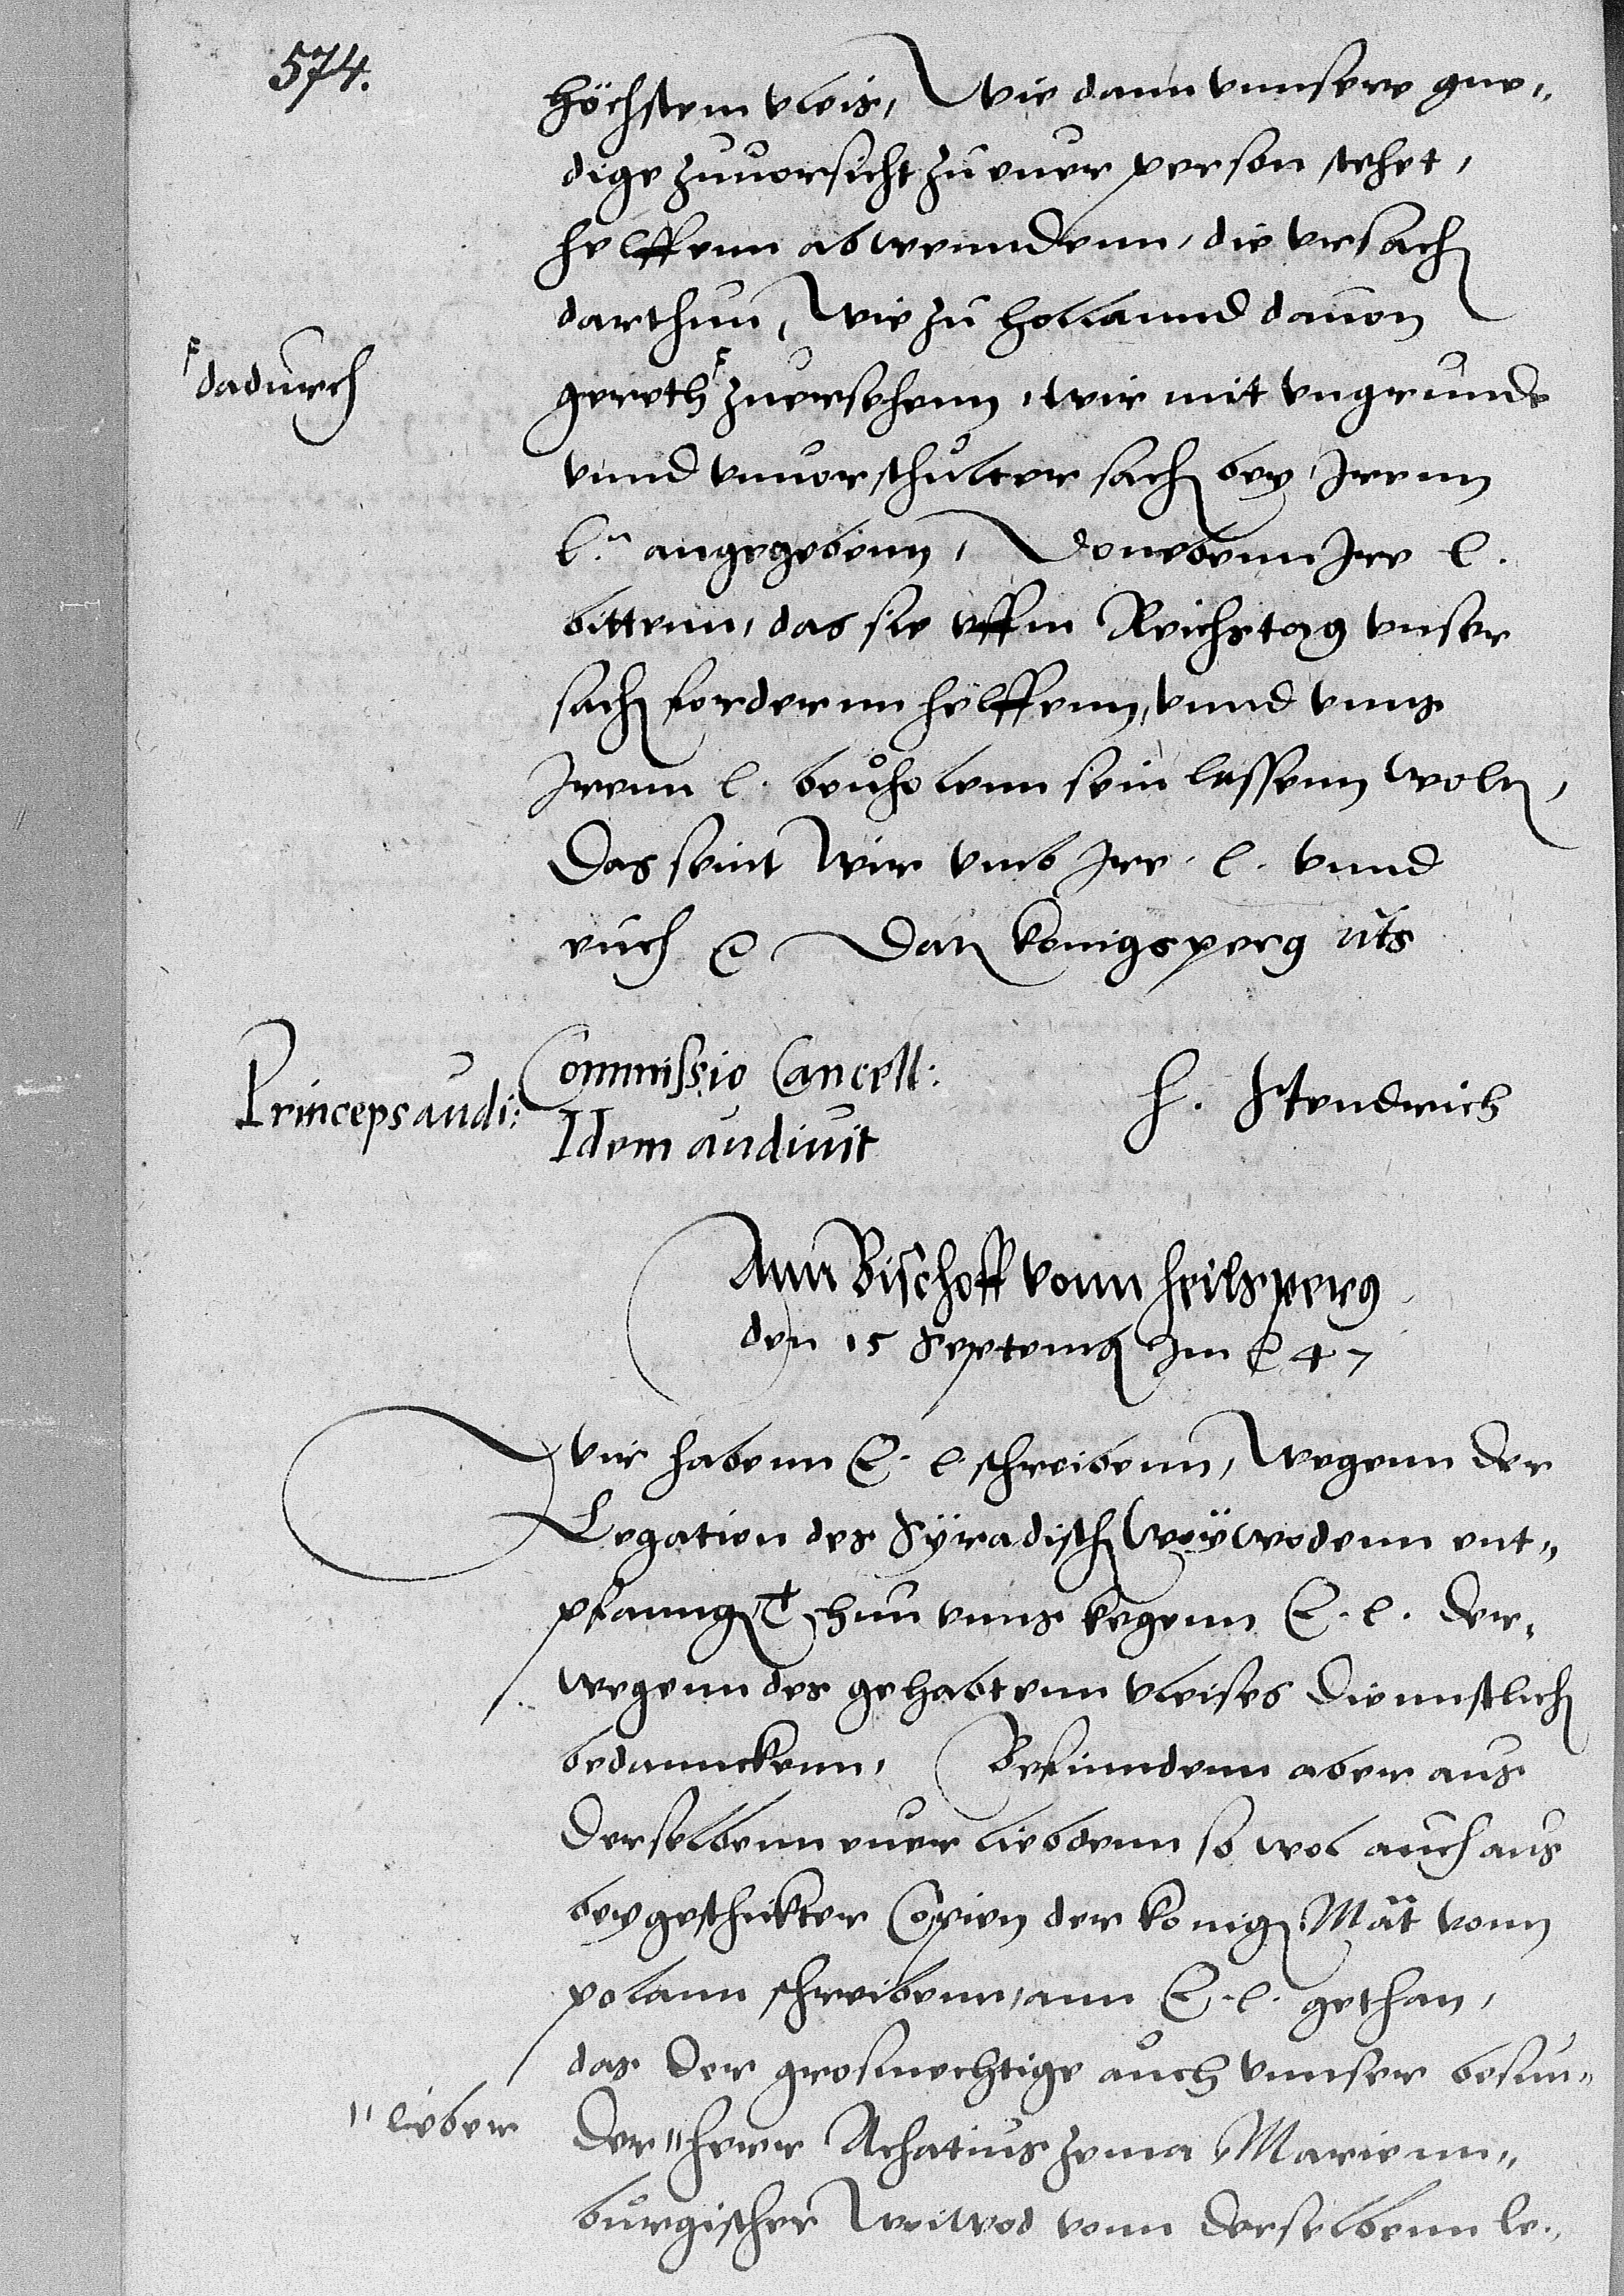 574.
höchstem vleis, Wie dann vnnsere gne„
dige zuuorsicht zu euer person stehet,
helffenn abwenndenn, die vrsach
darthun, Wie zu hollannd dauon
dadurch
gereth zuersehenn, wir mit vngrunde
vnnd vnuorschulter sach bey Irenn
l.n angegebenn, Donebenn Ire l.
bittenn, das sie vffm Reichstag vnser
sach fordernn helffenn, vnnd vnns
Irenn l. beuholenn sein lassenn woln,
Das seint Wir vmb Ire l. vnnd
euch Dat konigsperg uts
Princeps audi:
Commissio Cancell:
Idem audiuit
h.
Ann Bischoff vonn heilsperg
den 15 Septemb Im 47
Wir habenn E. l. schreibenn, Wegenn der
Legation des Syradisch Woywodenn ent„
pfanng Thun vnns kegenn E. l. der„
wegenn des gehabtenn vleises dienstlich
bedannckenn, Befinndenn aber aus
derselbenn euer liebdenn so wol auch aus
beygeschikter Copien der konig Mat vonn
polann schreibenn, ann E. l. gethan,
das der grosmechtige auch vnnser besun„
" lieber
der " herr Achatius Zema Marienn„
burgischer Woiwod vonn derselbenn le„